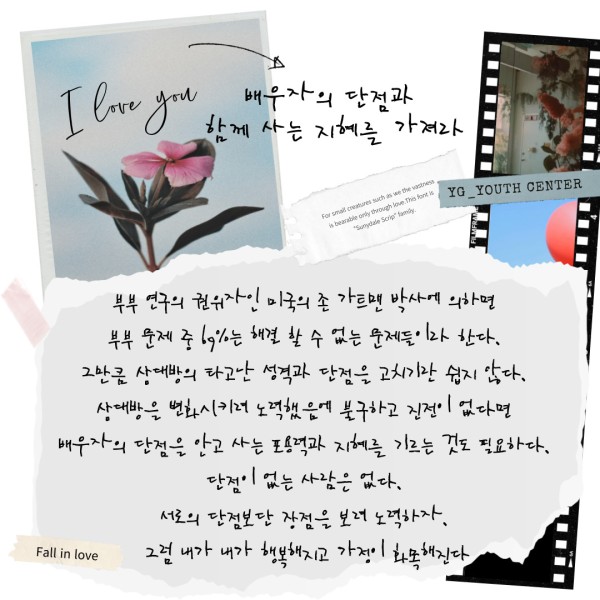 I love you
배우자의 단점과
함께 사는 지혜를 가져라
For small creatures such as we the vastness
is bearable only through love.This font is
"Sunydale Scrip" family.
YG_YOUTH CENTER
부부 연구의 권위자인 미국의 존 가트맨 박사에 의하면
부부 문제 중 69%는 해결 할 수 없는 문제들이라 한다.
그만큼 상대방의 타고난 성격과 단점을 고치기란 쉽지 않다.
상대방을 변화시키려 노력했음에 불구하고 진전이 없다면
배우자의 단점을 안고 사는 포용력과 지혜를 기르는 것도 필요하다.
단점이 없는 사람은 없다.
서로의 단점보단 장점을 보려 노력하자.
그럼 내가 내가 행복해지고 가정이 화목해진다
Fall in love